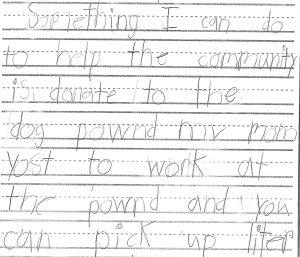 Something I can do
to help the community
is, donate to the
dog pownd my mom
yost to work at
the pownd and you
can pick up liter